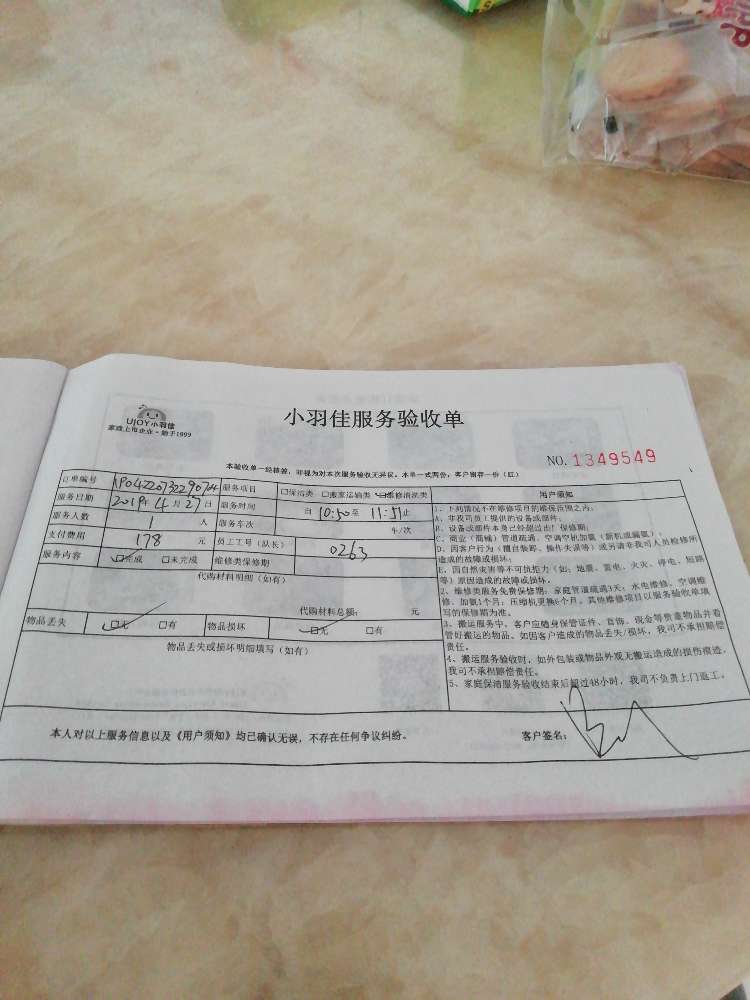 UJOY小羽佳
家政上市企业·始于1999
小羽佳服务验收单
NO. 1349549
本验收单一经签署,即视为对本次服务验收无异议。本单一式两份,客户留存一份(红)
订单编号 服务项目 □保洁类 □搬家运输类 ☑维修清洗类 用户须知
服务日期 2019年4月27日 服务时间 自10:50至11:51止
服务人数 1 人 服务车次 车/次
支付费用 178 元 员工工号(队长) 0263
服务内容 ☑完成 □未完成 维修类保修期
代购材料明细(如有)
代购材料总额: 元
物品丢失 ☑无 □有 物品损坏 ☑无 □有
物品丢失或损坏明细填写(如有)
1、下列情况不在维修项目的维保范围之内:
A、非我司员工提供的设备或部件;
B、设备或部件本身已经超过出厂保修期;
C、商业(商铺)管道疏通、空调空机加氟(新机或漏氟);
D、因客户行为(擅自装卸、操作失误等)或另请非我司人员检修所
造成的故障或损坏;
E、因自然灾害等不可抗力(如:地震、雷电、火灾、停电、短路
等)原因造成的故障或损坏。
2、维修类服务免费保修期:家庭管道疏通3天;水电维修、空调维
修、加氟1个月;压缩机更换6个月。其他维修项目以服务验收单填
写的保修期为准。
3、搬运服务中,客户应随身保管证件、首饰、现金等贵重物品并看
管好搬运的物品。如因客户造成的物品丢失/损坏,我司不承担赔偿
责任。
4、搬运服务验收时,如外包装或物品外观无搬运造成的损伤痕迹,
我司不承担赔偿责任。
5、家庭保洁服务验收结束后超过48小时,我司不负责上门返工。
本人对以上服务信息以及《用户须知》均已确认无误,不存在任何争议纠纷。 客户签名: